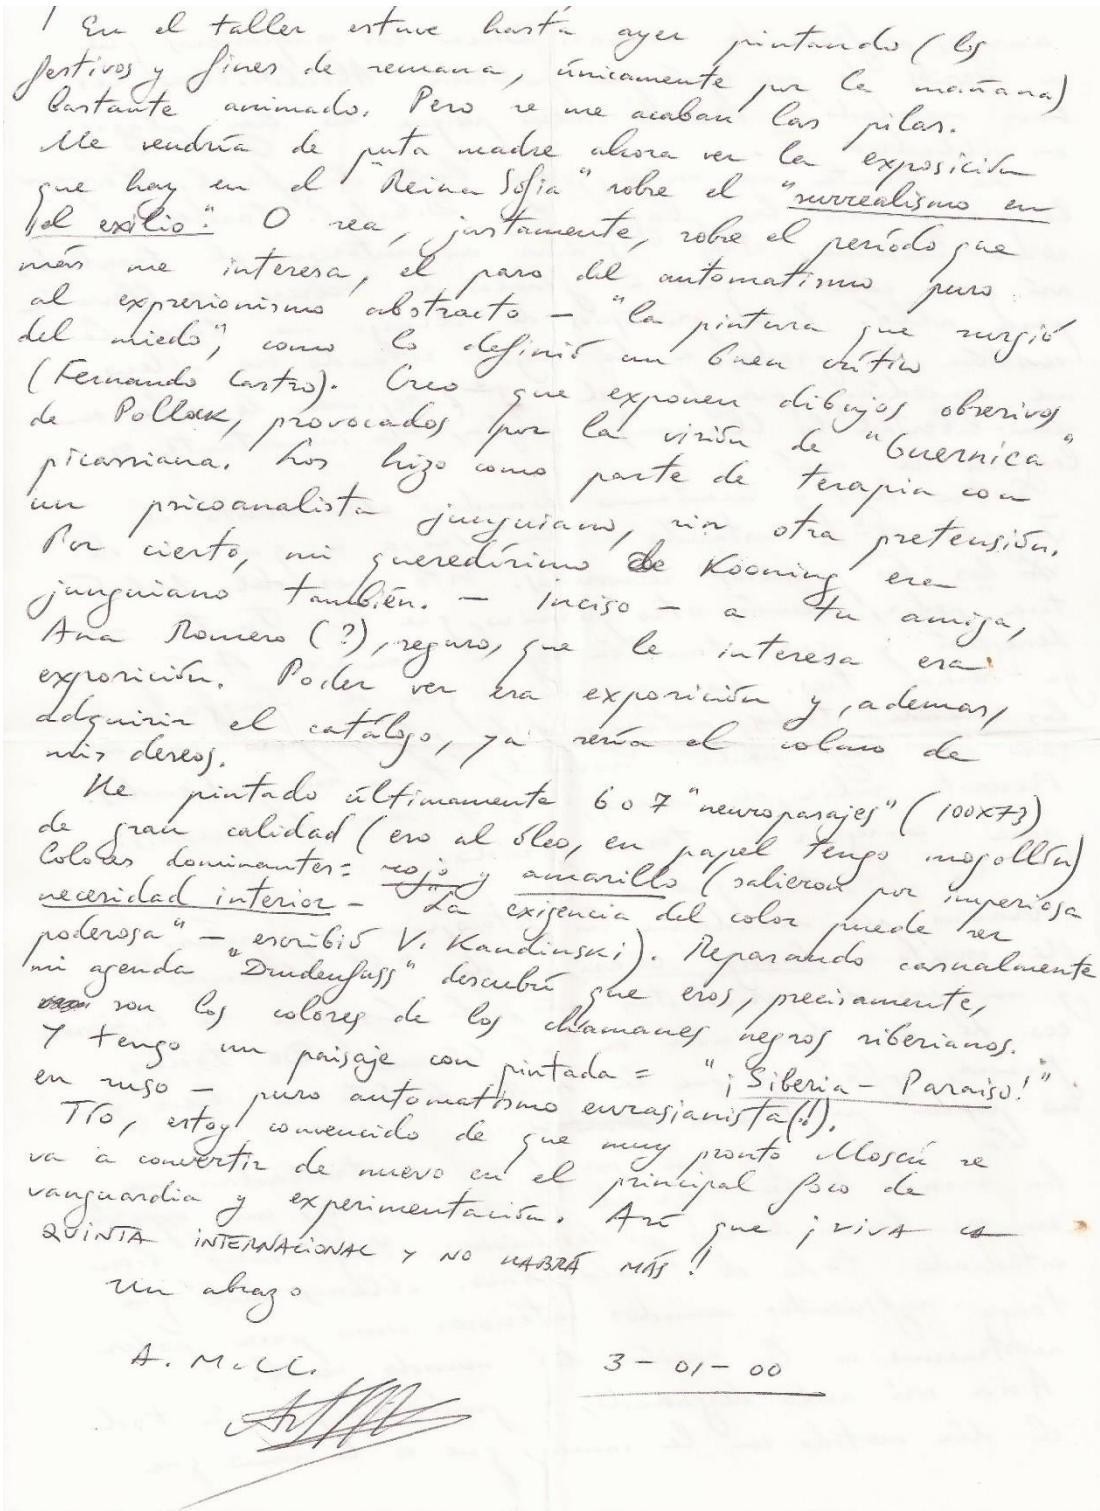 En el taller estuve hasta ayer pintando (los
festivos y fines de semana, únicamente por la mañana)
bastante animado. Pero se me acaban las pilas.
Me vendría de puta madre ahora ver la exposición
que hay en el "Reina Sofía" sobre el "surrealismo en
el exilio". O sea, justamente, sobre el período que
más me interesa, el paso del automatismo puro
al expresionismo abstracto — "la pintura que surgió
del miedo", como lo definió un buen crítico
(Fernando Castro). Creo que exponen dibujos obsesivos
de Pollock, provocados por la visión de "Guernica"
picassiana. Los hizo como parte de terapia con
un psicoanalista junguiano, sin otra pretensión.
Por cierto, mi queredísimo de Kooning era
junguiano también. — Inciso — a tu amiga,
Ana Romero (?), seguro, que le interesa esa
exposición. Poder ver esa exposición y, ademas,
adquirir el catálogo, ya sería el colmo de
mis deseos.
He pintado últimamente 6 o 7 "neuroparajes" (100x73)
de gran calidad (eso al óleo, en papel tengo mogollón)
Colores dominantes: rojo y amarillo (salieron por imperiosa
necesidad interior — "La exigencia del color puede ser
poderosa" — escribió V. Kandinski). Reparando casualmente
mi agenda "Drudenfuss" descubrí que esos, precisamente,
son los colores de los chamanes negros siberianos.
Y tengo un paisaje con pintada = "¡Siberia — Paraiso!"
en ruso — puro automatismo eurasianista(!).
Tío, estoy convencido de que muy pronto Moscú se
va a convertir de nuevo en el principal foco de
vanguardia y experimentación. Así que ¡VIVA LA
QUINTA INTERNACIONAL Y NO HABRÁ MÁS!
Un abrazo
A. M.
3-01-00